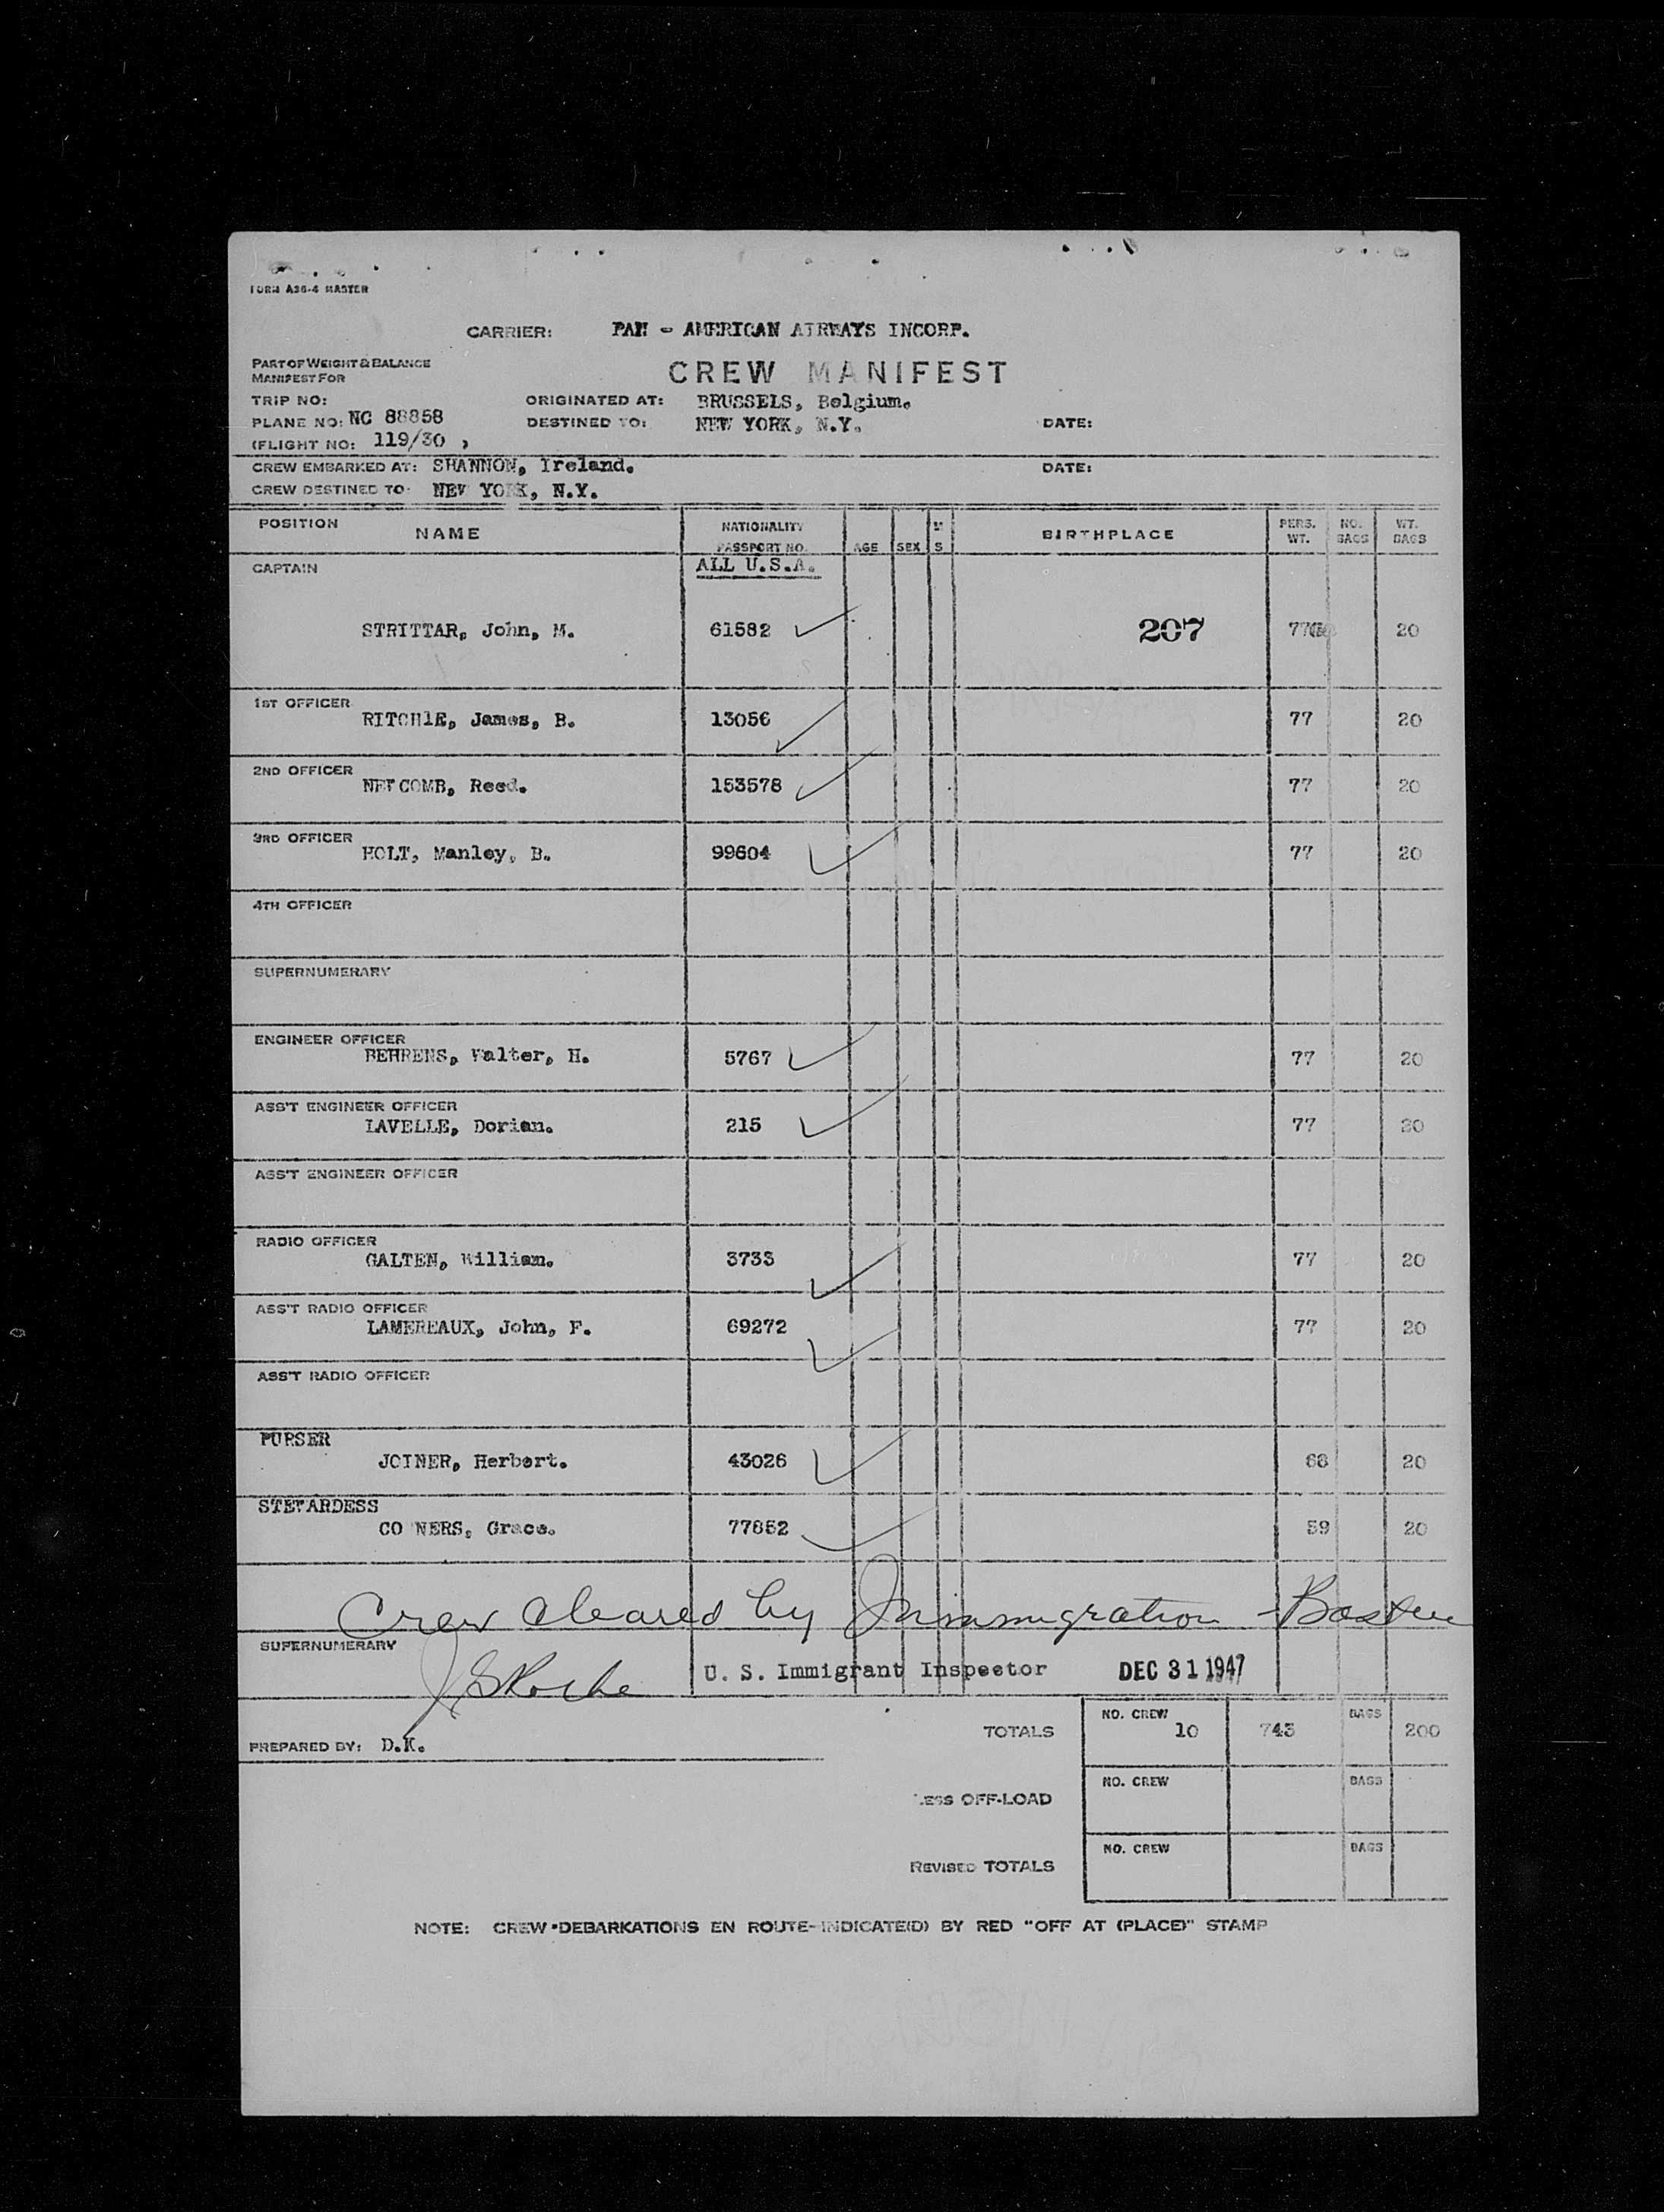 FORM A36-4 MASTER
CARRIER: PAN - AMERICAN AIRWAYS INCORP.
PART OF WEIGHT & BALANCE
MANIFEST FOR
CREW MANIFEST
TRIP NO: ORIGINATED AT: BRUSSELS, Belgium.
PLANE NO: NC 88858 DESTINED TO: NEW YORK, N.Y. DATE:
(FLIGHT NO: 119/30 )
CREW EMBARKED AT: SHANNON, Ireland. DATE:
CREW DESTINED TO: NEW YORK, N.Y.
POSITION NAME NATIONALITY PASSPORT NO. AGE SEX M S BIRTHPLACE PERS. WT. NO. BAGS WT. BAGS
CAPTAIN ALL U.S.A.
STRITTAR, John, M. 61582 207 77 20
1ST OFFICER
RITCHIE, James, B. 13056 77 20
2ND OFFICER
NEWCOMB, Reed. 153578 77 20
3RD OFFICER
HOLT, Manley, B. 99604 77 20
4TH OFFICER
SUPERNUMERARY
ENGINEER OFFICER
BEHRENS, Walter, H. 5767 77 20
ASS'T ENGINEER OFFICER
LAVELLE, Dorian. 215 77 20
ASS'T ENGINEER OFFICER
RADIO OFFICER
GALTEN, William. 3733 77 20
ASS'T RADIO OFFICER
LAMEREAUX, John, F. 69272 77 20
ASS'T RADIO OFFICER
PURSER
JOINER, Herbert. 43026 68 20
STEWARDESS
CO NERS, Grace. 77852 59 20
Crew cleared by Immigration - Boston
SUPERNUMERARY
J S Roche U. S. Immigrant Inspector DEC 31 1947
TOTALS NO. CREW 10 743 BAGS 200
PREPARED BY: D.K.
LESS OFF-LOAD NO. CREW BAGS
REVISED TOTALS NO. CREW BAGS
NOTE: CREW DEBARKATIONS EN ROUTE-INDICATE(D) BY RED "OFF AT (PLACE)" STAMP